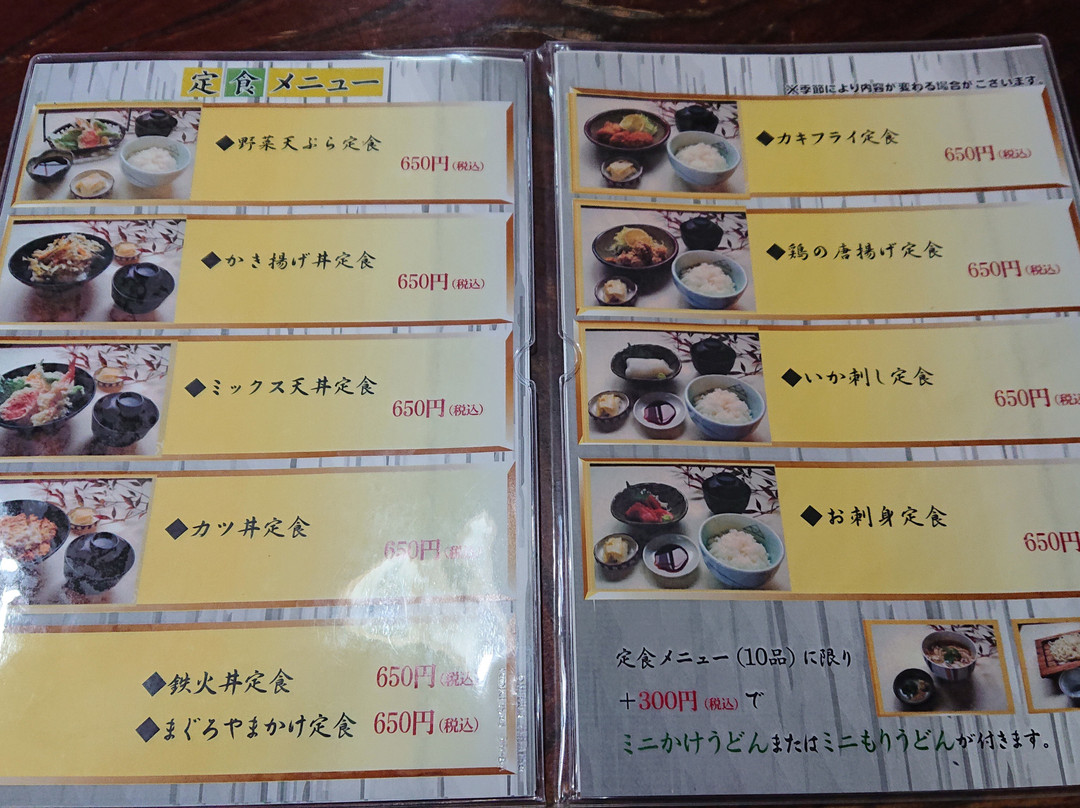 定食メニュー
◆野菜天ぷら定食
650円(税込)
◆かき揚げ丼定食
650円(税込)
◆ミックス天丼定食
650円(税込)
◆カツ丼定食
650円(税込)
◆鉄火丼定食 650円(税込)
◆まぐろやまかけ定食 650円(税込)
※季節により内容が変わる場合がございます。
◆カキフライ定食
650円(税込)
◆鶏の唐揚げ定食
650円(税込)
◆いか刺し定食
650円(税込
◆お刺身定食
650円
定食メニュー(10品)に限り
+300円(税込)で
ミニかけうどんまたはミニもりうどんが付きます。